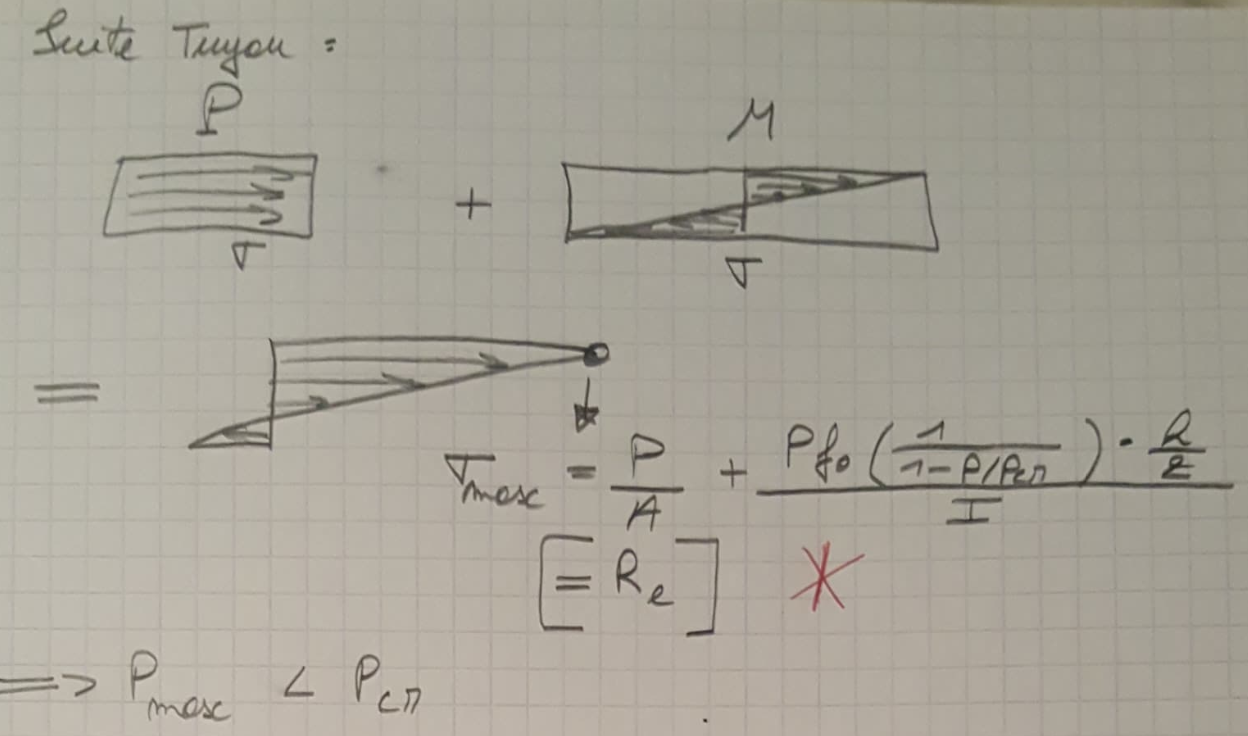 Suite Tuyau :
P M
+
σ σ
=
σmax = P/A + P f₀ (1/(1-P/Pcr)) · h/2 / I
[= Re] *
=> Pmax < Pcr